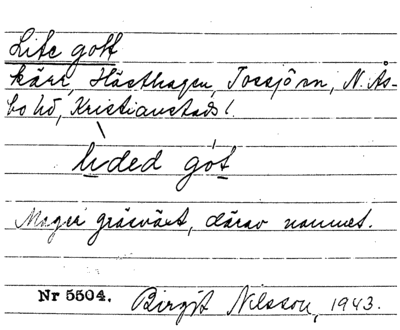 Lite gott
kärr, Hästhagen, Tossjön, N. Ås-
bo hd, Kristianstads l.
lided gót
Mager gräsväxt, därav namnet.
Nr 5504. Birgit Nilsson, 1943.